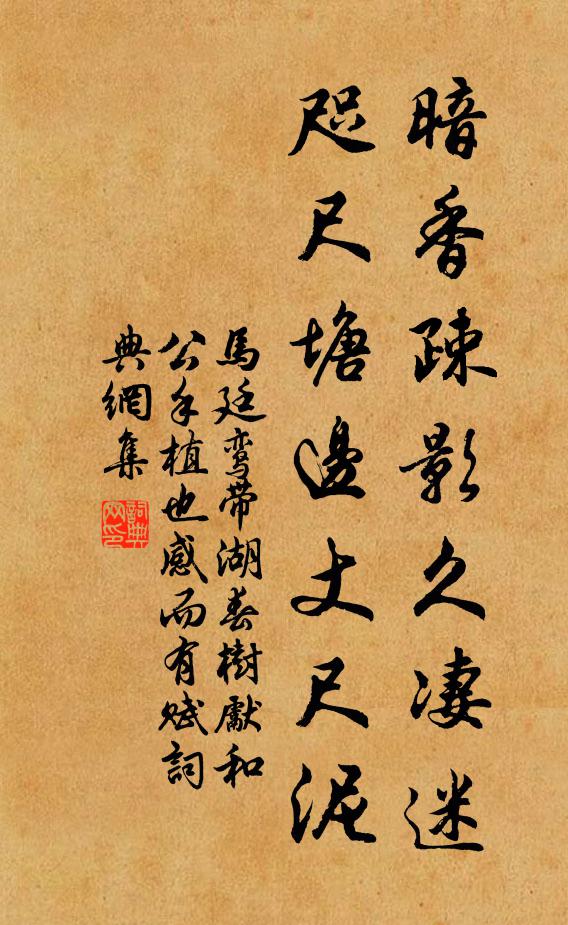 暗香疎影久凄迷
咫尺塘邊丈尺泥
馬廷鸾帶湖春樹獻和
公手植也感而有賦詞
典網集
詞典
网印